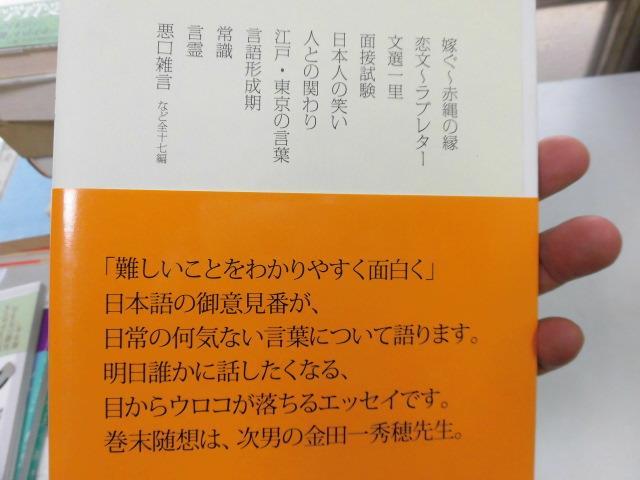 嫁ぐ～赤縄の縁
恋文～ラブレター
文選一里
面接試験
日本人の笑い
人との関わり
江戸・東京の言葉
言語形成期
常識
言霊
悪口雑言 など全十七編
「難しいことをわかりやすく面白く」
日本語の御意見番が、
日常の何気ない言葉について語ります。
明日誰かに話したくなる、
目からウロコが落ちるエッセイです。
巻末随想は、次男の金田一秀穂先生。